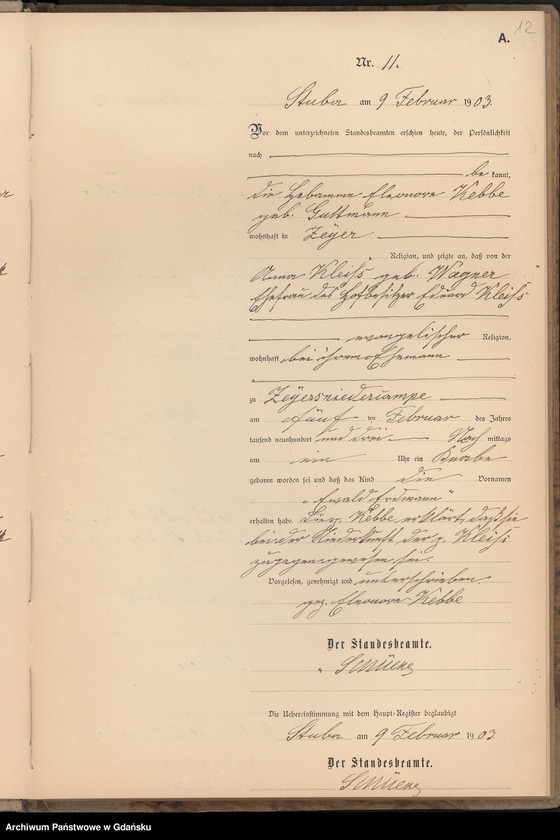 12
A.
Nr. 11.
Stuba am 9 Februar 1903.
Vor dem unterzeichneten Standesbeamten erschien heute, der Persönlichkeit
nach
be kannt,
die Hebamme Eleonore Kebbe
geb. Guttmann
wohnhaft in Zeyer
Religion, und zeigte an, daß von der
Anna Kleiss geb. Wagner
Ehefrau des Hofbesitzer Eduard Kleiss
evangelischer Religion,
wohnhaft bei ihrem Ehemann
zu Zeyersniedercampe
am fünf ten Februar des Jahres
tausend neunhundert und drei Nach mittags
um ein Uhr ein Knabe
geboren worden sei und daß das Kind die Vornamen
"Ewald Erdmann"
erhalten habe. Die p. Kebbe erklärt, daß sie
bei der Niederkunft der p. Kleiss
zugegen gewesen sei.
Vorgelesen, genehmigt und unterschrieben.
gez. Eleonore Kebbe
Der Standesbeamte.
Die Uebereinstimmung mit dem Haupt-Register beglaubigt
Stuba am 9 Februar 1903
Der Standesbeamte.
Archiwum Państwowe w Gdańsku